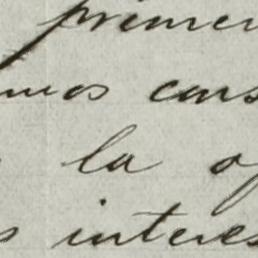 primer
mos cons
la o
s interes